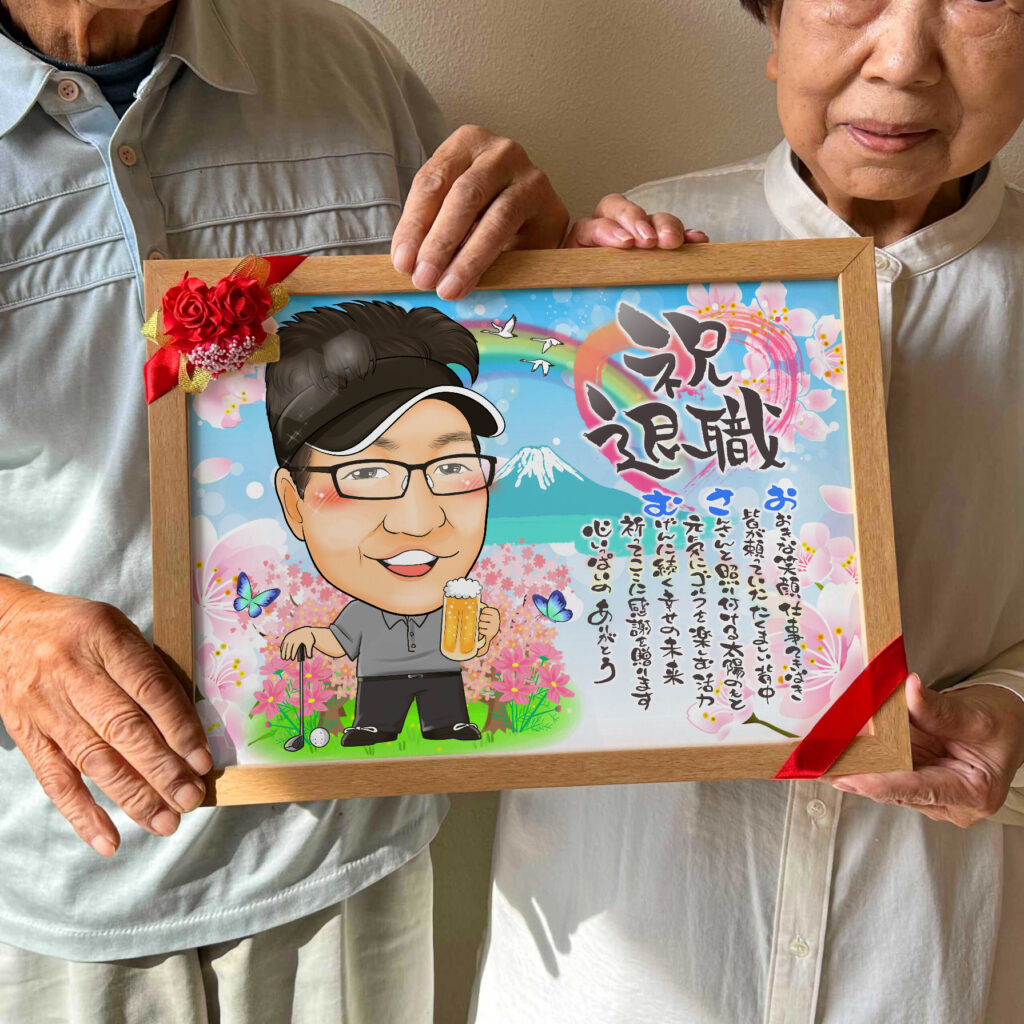 祝
退職
おおきな笑顔 仕事てきぱき
皆が頼っていた たくましい背中
さんさんと照り付ける太陽のもと
元気にゴルフを楽しむ活力
むげんに続く幸せの未来
祈ってここに感謝を贈ります
心いっぱいの ありがとう